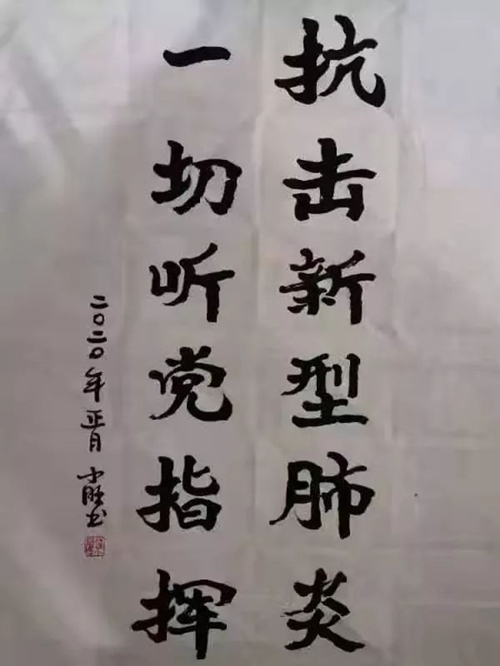 抗击新型肺炎
一切听党指挥
二〇二〇年正月小胜书